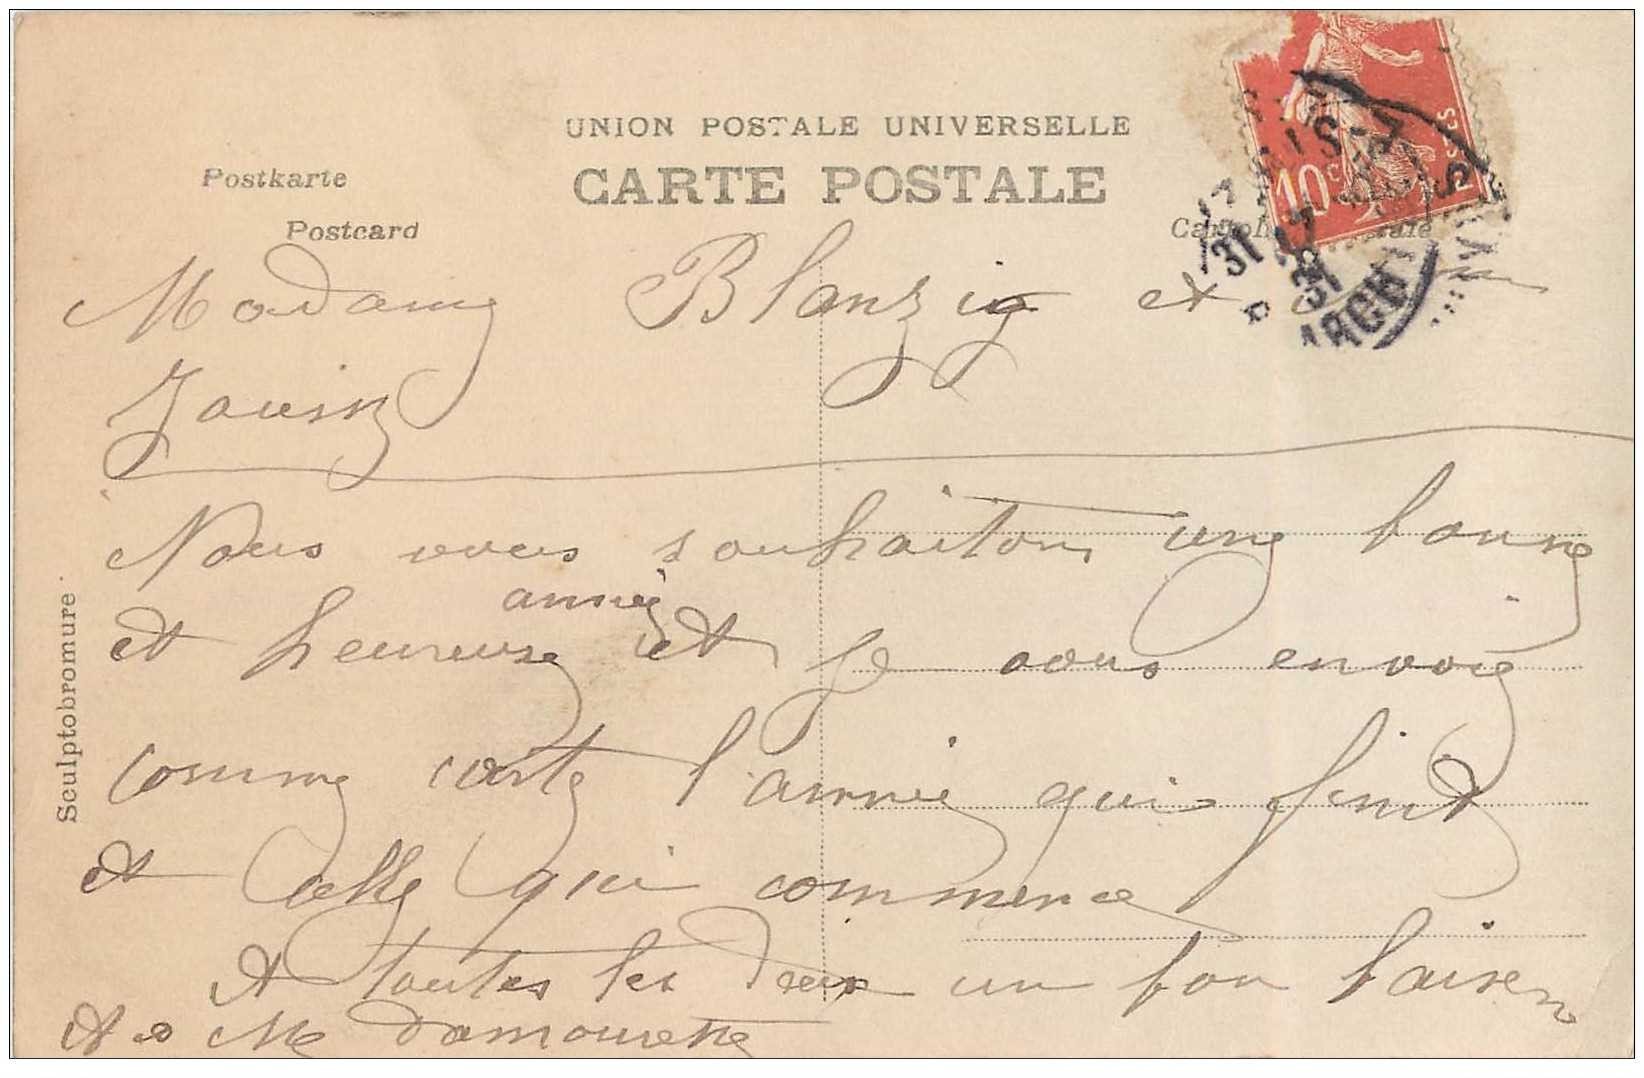 UNION POSTALE UNIVERSELLE
CARTE POSTALE
Postkarte
Postcard
10c
Postes
Madame Blanzig et
Jouin
Nous vous souhaitons une bonne
année
et heureuse et je vous envoie
comme carte l'année qui finit
et celle qui commence
A toutes les deux un bon baiser
Me Damourette
Sculptobromure